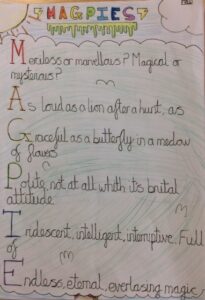 MAGPIES
Merciless or marvellous? Magical or
mysterious?
As loud as a lion after a hunt, as
Graceful as a butterfly in a medow
of flowers
Polite, not at all whith its brital
attitude.
Iridescent, intelligent, interruptive. Full
of
Endless, eternal, everlasing magic